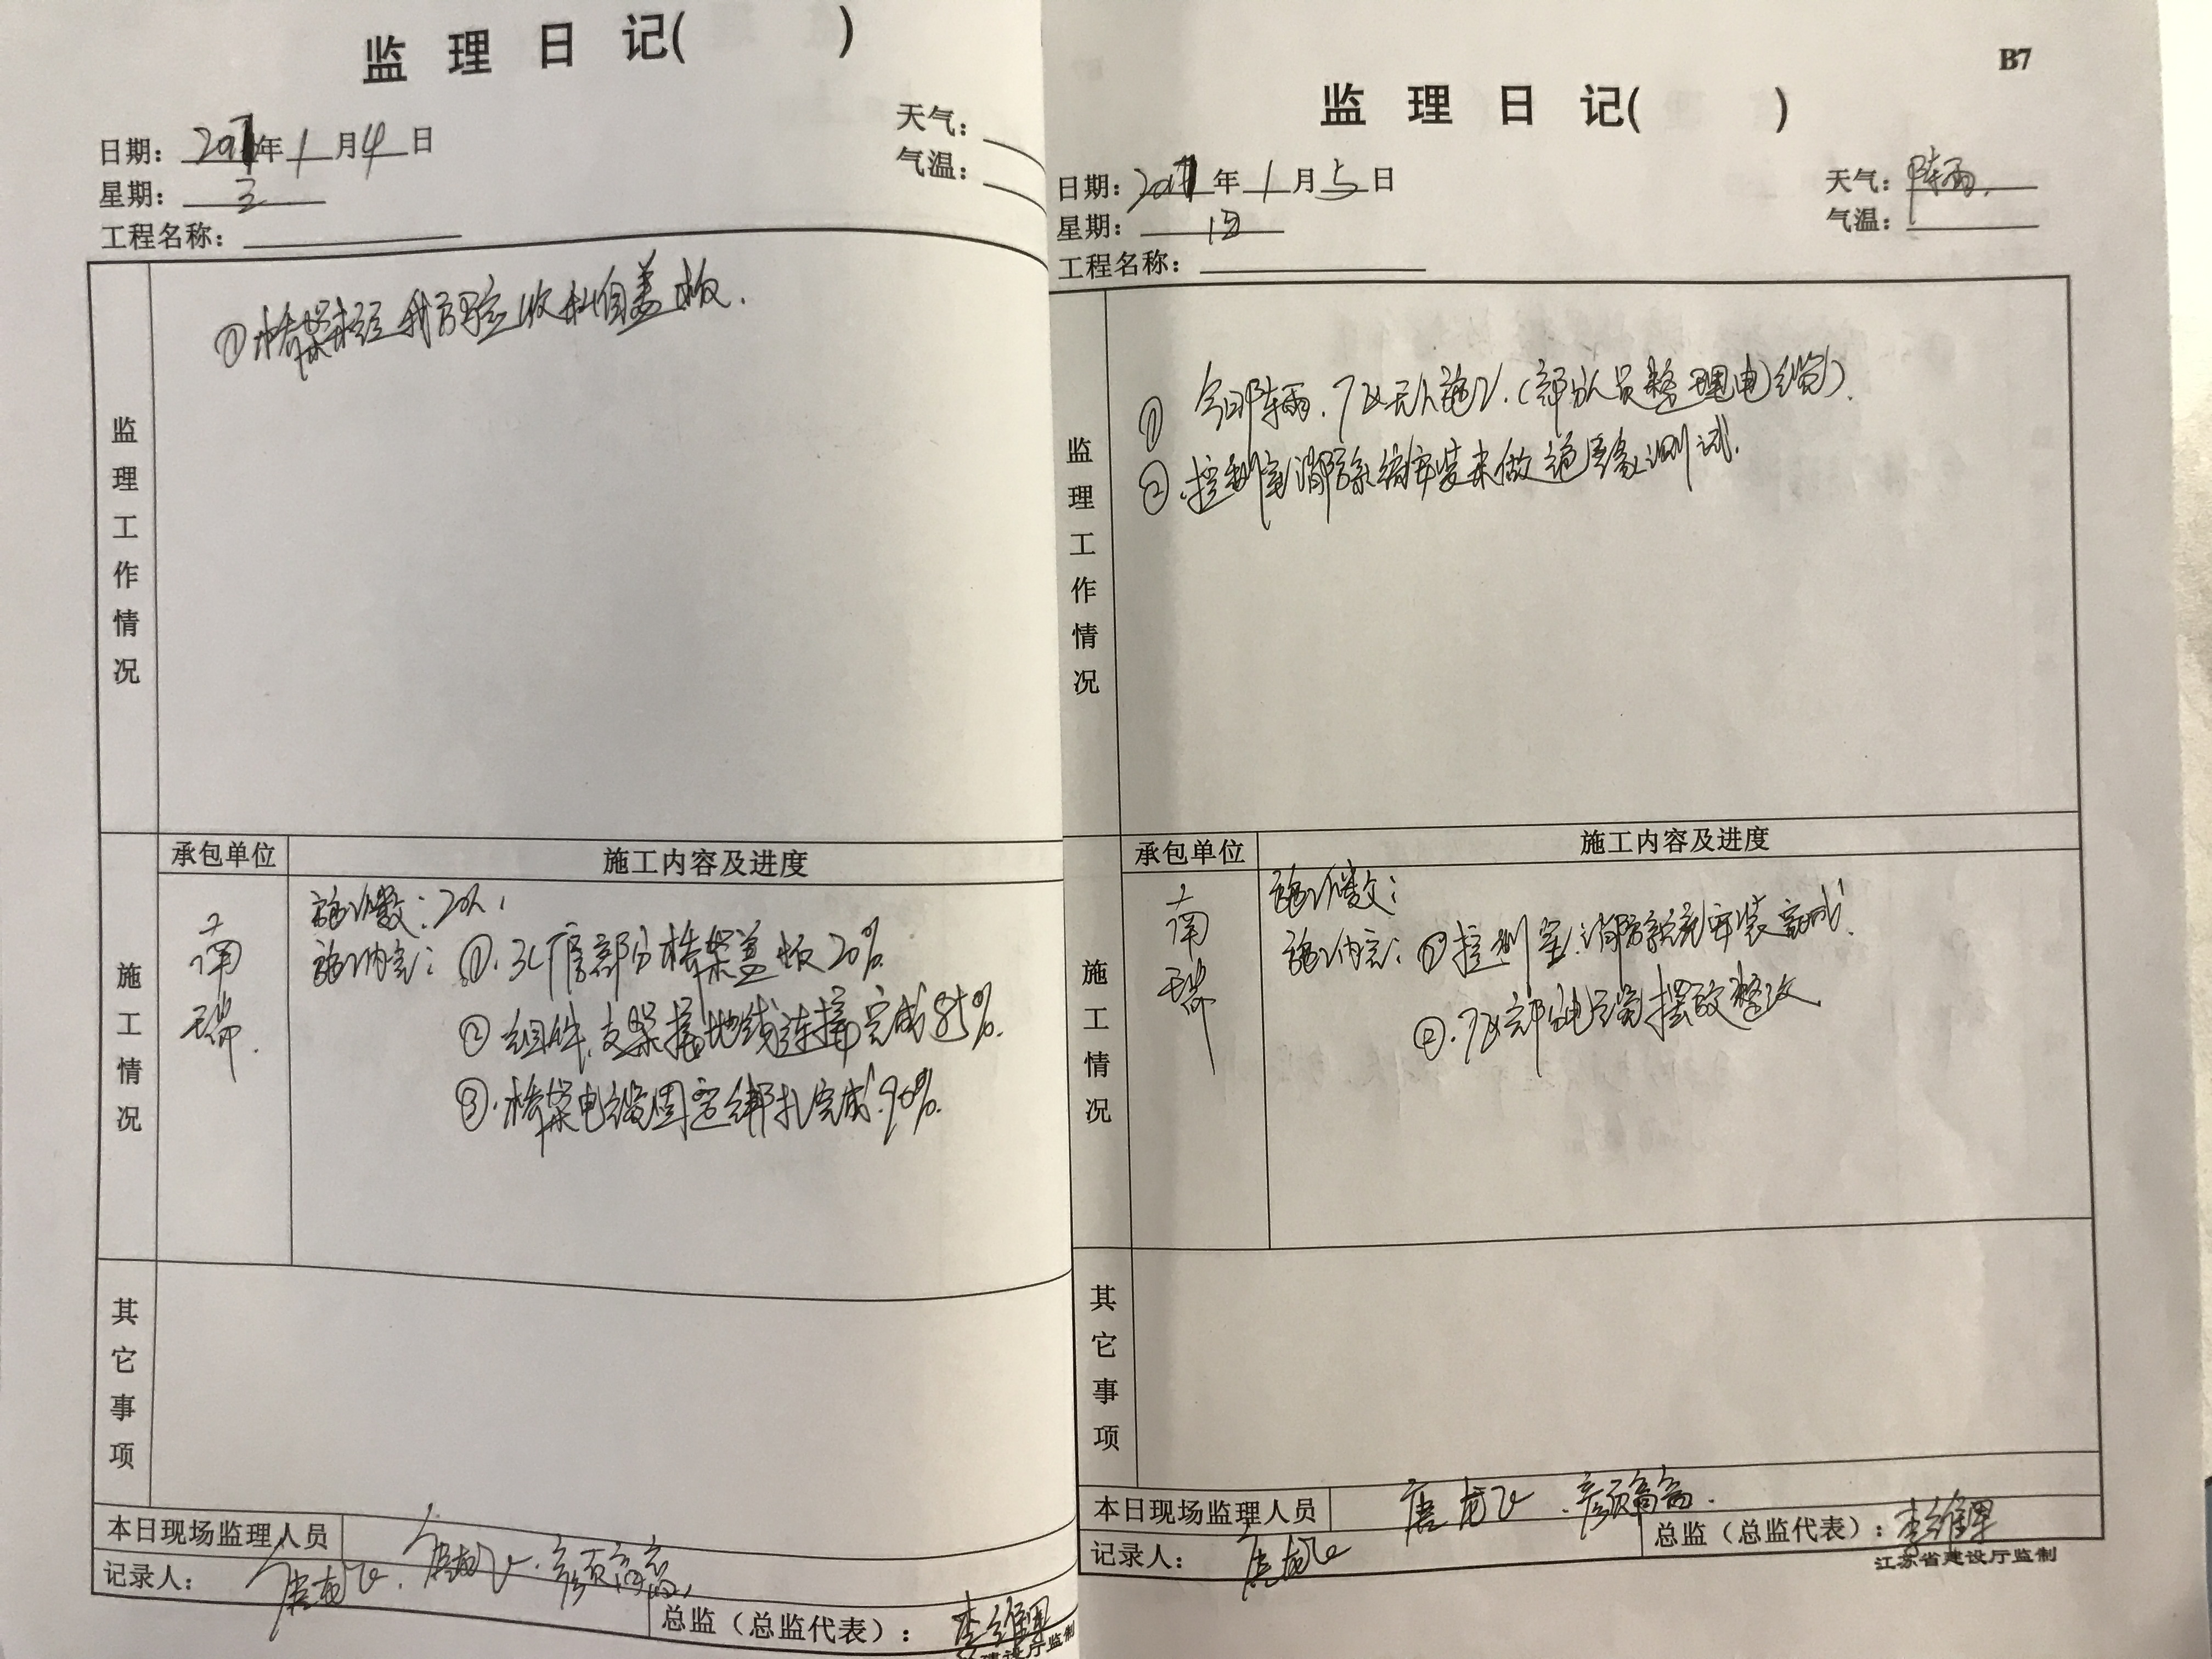 监 理 日 记( )
日期: 2017年1月4日
天气:
星期: 三
气温:
工程名称:
监理工作情况
①桥架未经我方验收私自盖板.
承包单位
施工内容及进度
施工情况
南瑞.
施工人数: 20人,
施工内容: ①. 3#厂房部分桥架盖板20%.
②组件、支架接地线连接完成85%.
③.桥架电缆固定绑扎完成.90%.
其它事项
本日现场监理人员
记录人:
总监（总监代表）:
建设厅监制
B7
监 理 日 记( )
日期: 2017年1月5日
天气: 阵雨.
星期: 四
气温:
工程名称:
监理工作情况
① 今日阵雨.7区无人施工.(部分人员整理电缆).
②.控制室消防系统安装未做绝缘测试.
承包单位
施工内容及进度
施工情况
南瑞
施工人数:
施工内容: ①控制室消防系统安装完成.
②.7区部分电缆摆放整改
其它事项
本日现场监理人员
记录人:
总监（总监代表）:
江苏省建设厅监制